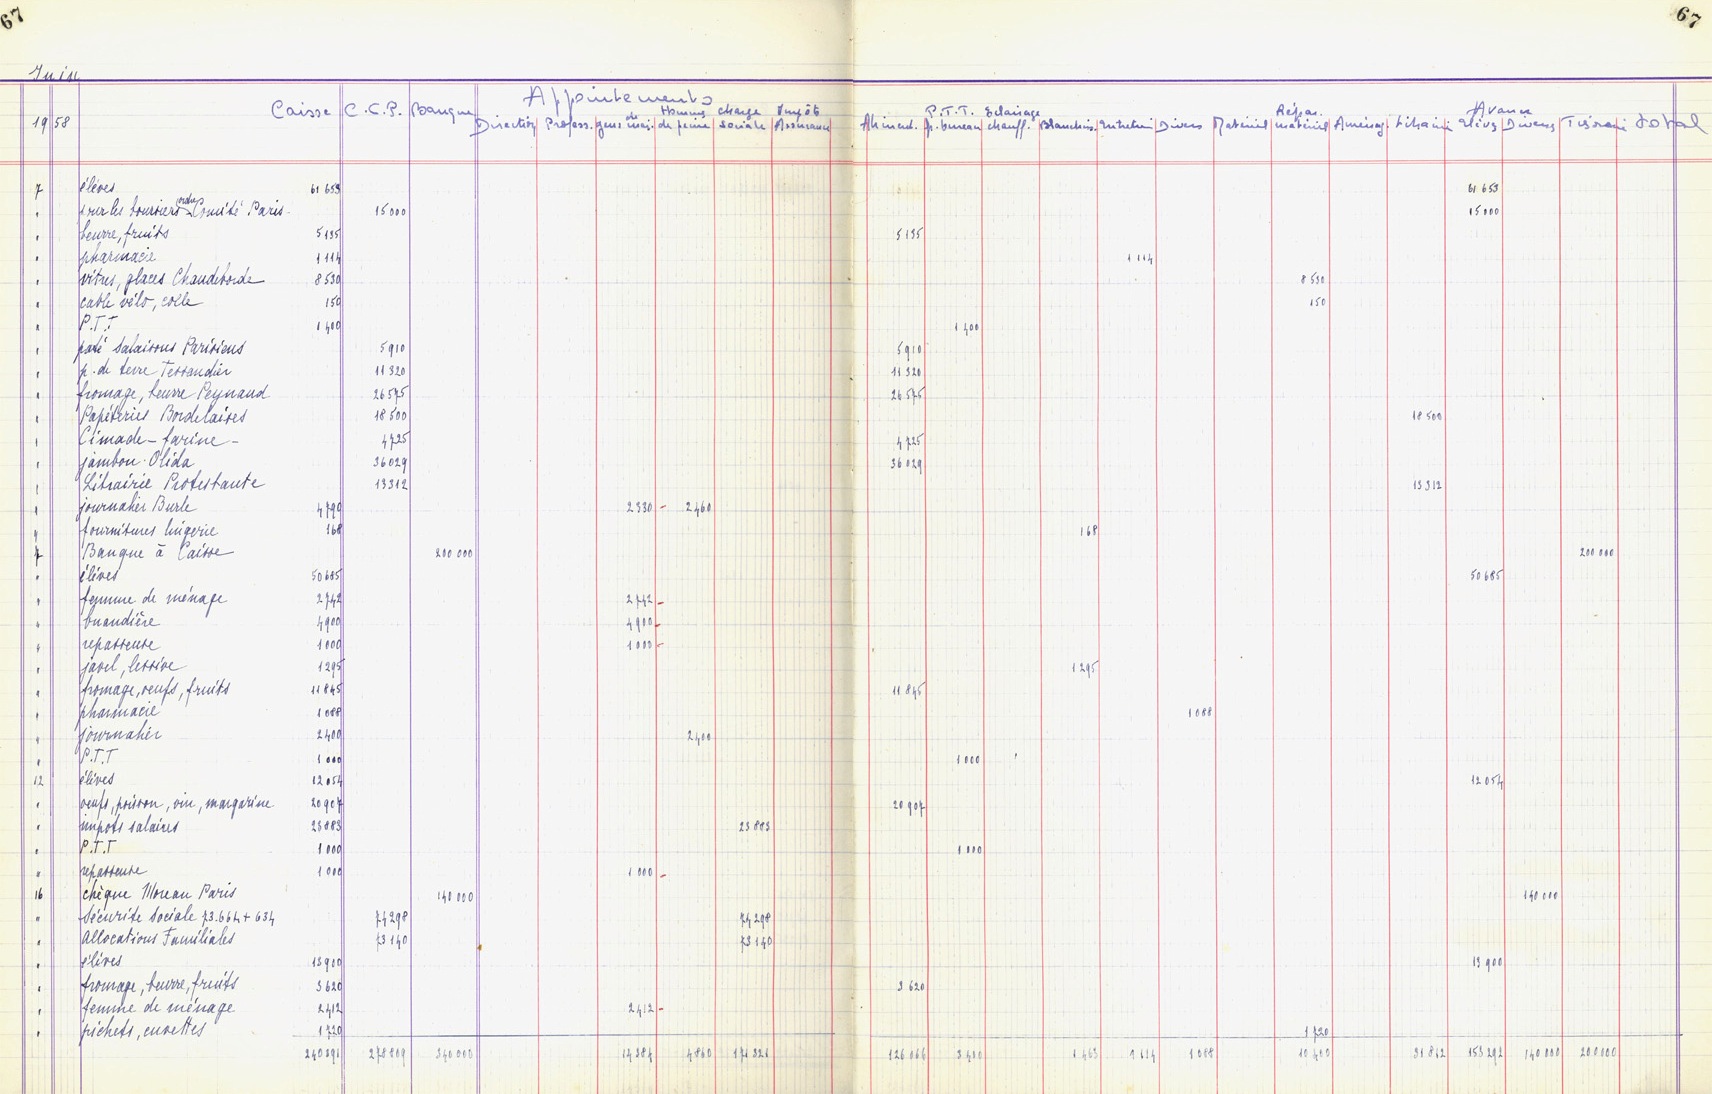 67 67
Juin
1958 Caisse C.C.P. Banque Appointements Direction Profess. gens de mais. Hommes de peine charge sociale Impôts Assurance Aliment. P.T.T. f. bureau Eclairage chauff. Blanchis. Entretien Divers Matériel Répar. matériel Aménag. Librairie Avance Elèves Divers Trésorerie total
7 élèves 61 653 61 653
" sur les boursiers ordre Comité Paris 15 000 15 000
" beurre, fruits 5 135 5 135
" pharmacie 1 114 1 114
" vitres, glaces Chaudeborde 8 530 8 530
" cable vélo, colle 150 150
" P.T.T 1 400 1 400
" paté Salaisons Parisiens 5 910 5 910
" p. de terre Tessandier 11 320 11 320
" fromage, beurre Peynaud 26 575 26 575
" Papéteries Bordelaises 18 500 18 500
" Cimade - farine - 4 725 4 725
" jambon Olida 36 029 36 029
" Librairie Protestante 13 312 13 312
" journalier Burle 4 790 2 330 - 2 460
" fournitures lingerie 168 168
7 Banque à Caisse 200 000 200 000
" élèves 50 685 50 685
" femme de ménage 2 742 2 742 -
" buandière 4 900 4 900 -
" repasseuse 1 000 1 000 -
" javel, lessive 1 295 1 295
" fromage, oeufs, fruits 11 845 11 845
" pharmacie 1 088 1 088
" journalier 2 400 2 400
" P.T.T 1 000 1 000
12 élèves 12 054 12 054
" oeufs, poisson, vin, margarine 20 907 20 907
" impots salaires 23 883 23 883
" P.T.T 1 000 1 000
" repasseuse 1 000 1 000 -
16 chèque Moreau Paris 140 000 140 000
" Sécurité Sociale 73.664 + 634 74 298 74 298
" Allocations Familiales 73 140 73 140
" élèves 13 900 13 900
" fromage, beurre, fruits 3 620 3 620
" femme de ménage 2 412 2 412 -
" pichets, cuvettes 1 720 1 720
240 391 278 809 340 000 14 384 4 860 171 321 126 066 3 400 1 463 1 114 1 088 10 400 31 812 153 292 140 000 200 000